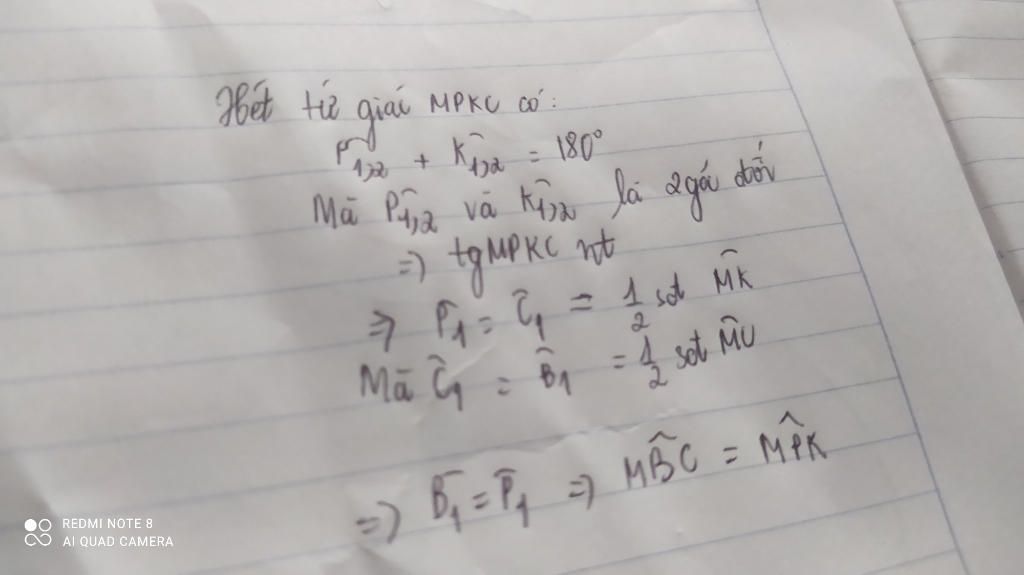 Xét tứ giác MPKC có:
P̂1,2 + K̂1,2 = 180°
Mà P̂1,2 và K̂1,2 là 2 góc đối
=> tg MPKC nt
=> P̂1 = Ĉ1 = 1/2 sđ M͡K
Mà Ĉ1 = B̂1 = 1/2 sđ M͡C
=> B̂1 = P̂1 => MB̂C = MP̂K
REDMI NOTE 8
AI QUAD CAMERA